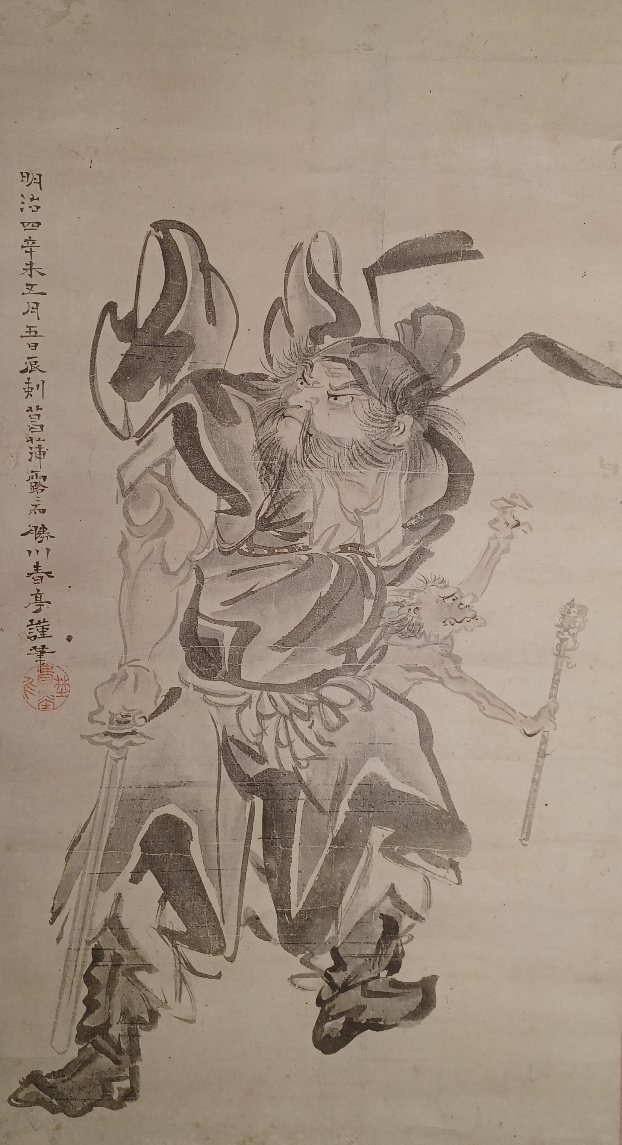 明治四辛未五月五日辰刺菖蒲露而勝川春亭謹筆